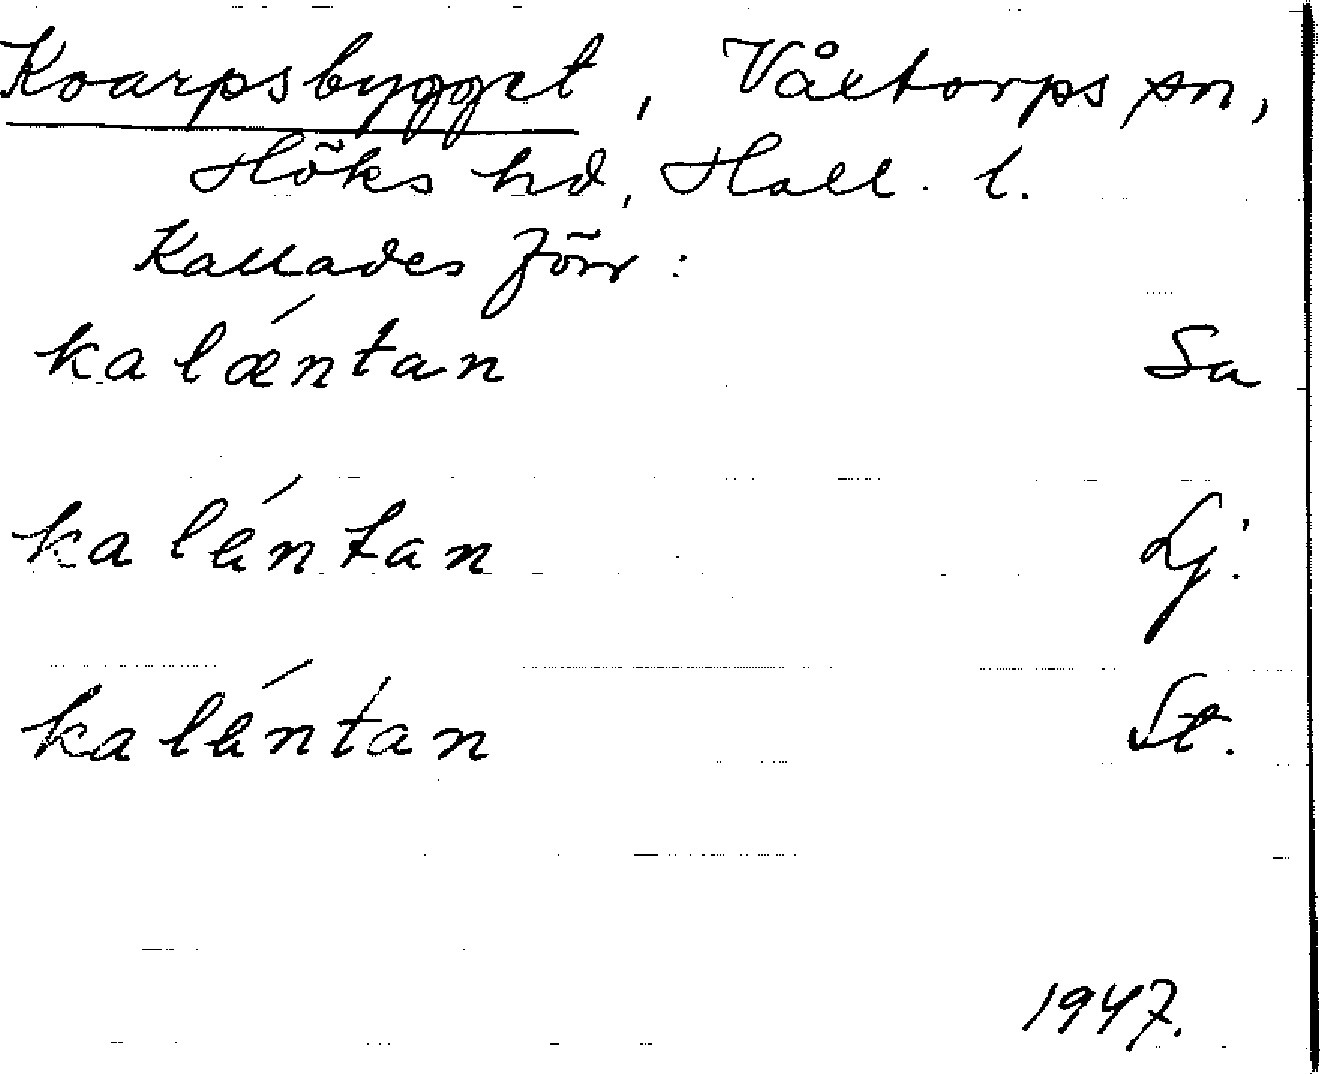 Koarpsbygget, Våxtorps sn,
Höks hd, Hall. l.
Kallades förr:
kalæ´ntan Sa
kalä´ntan Lj.
kalä´ntan St.
1947.